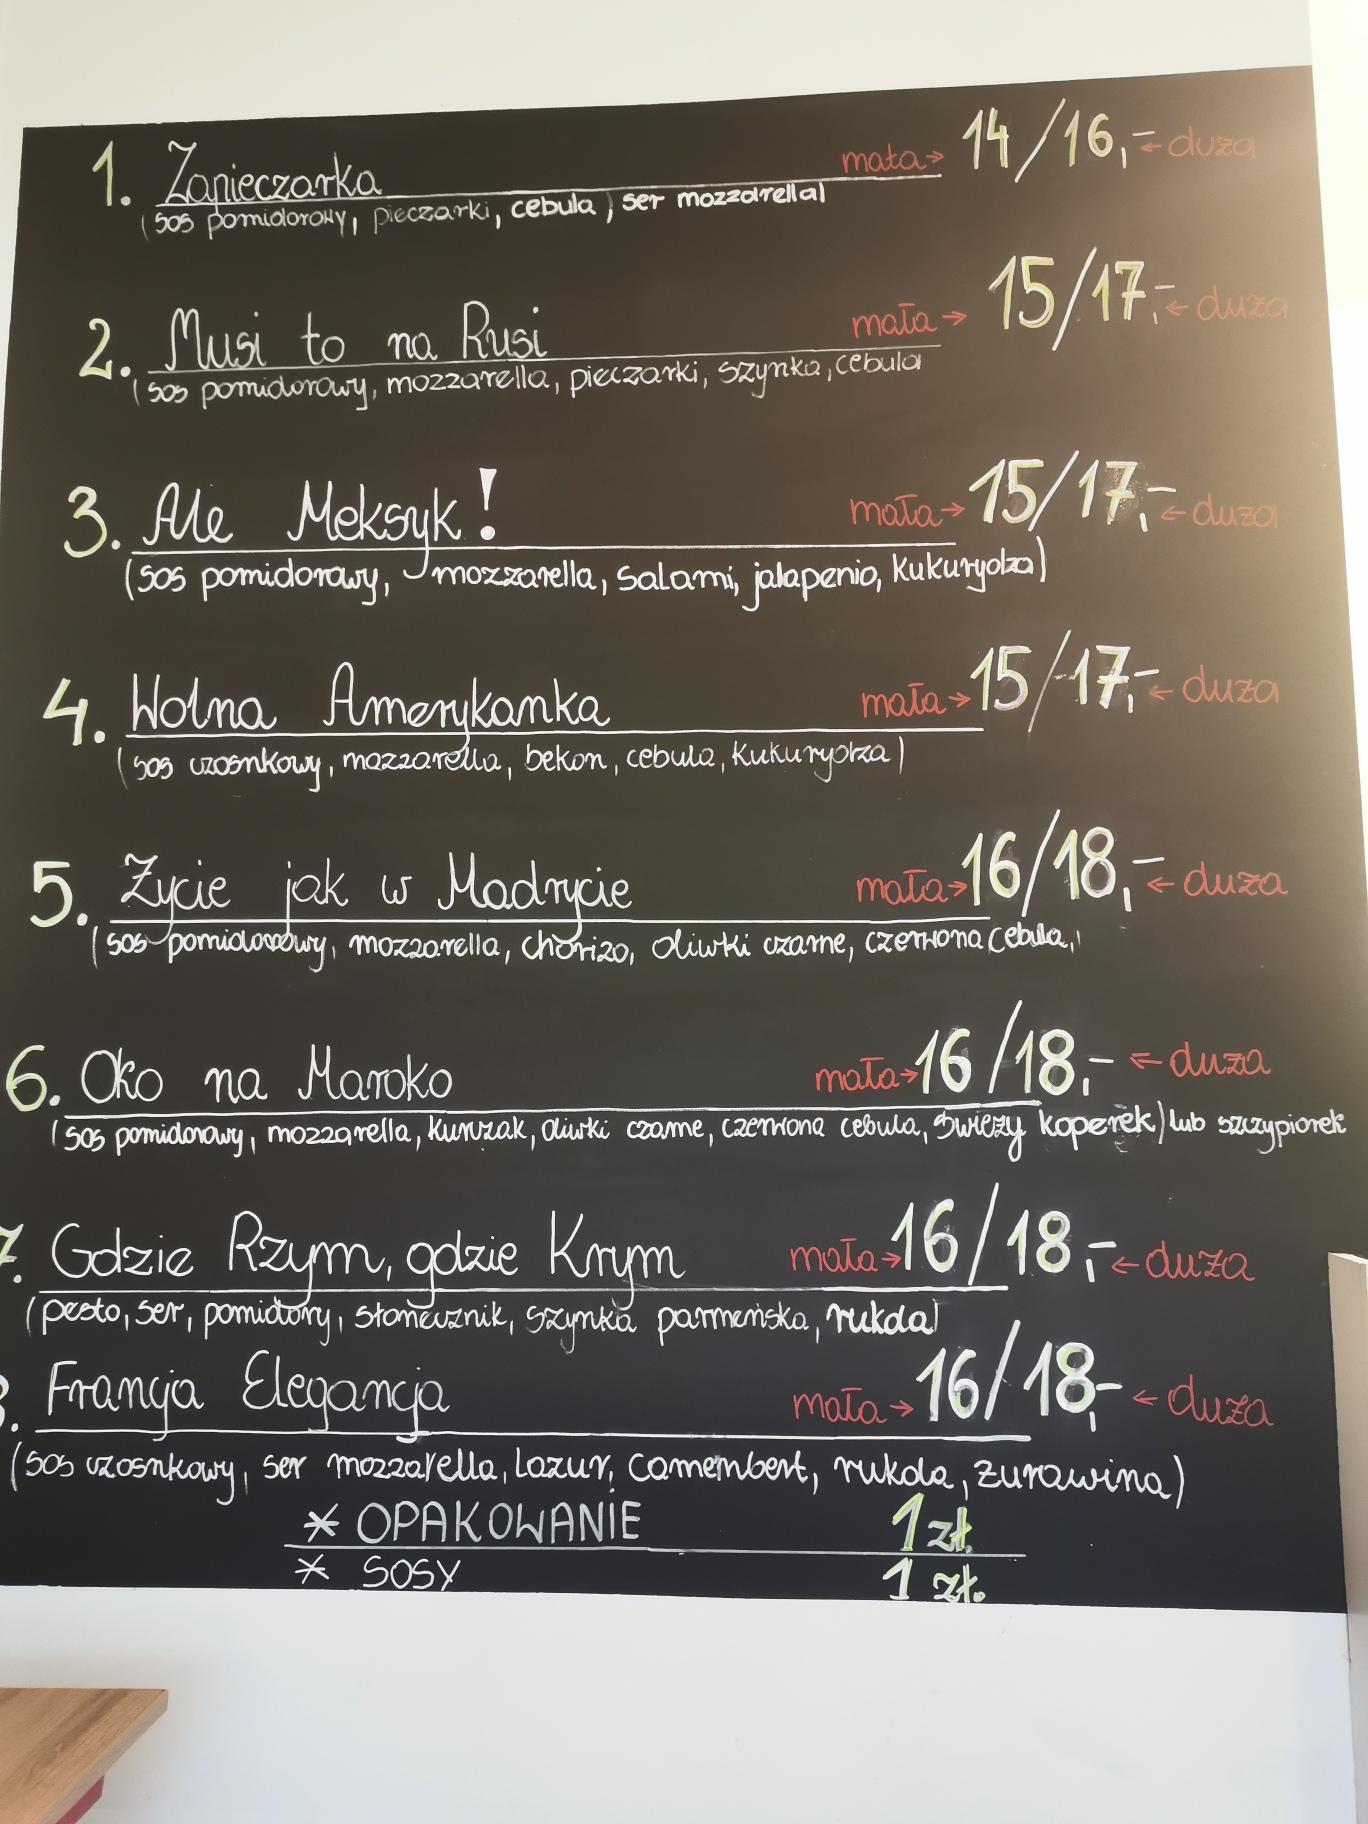 1. Zapieczarka mała→ 14/16,- ←duża
(sos pomidorowy, pieczarki, cebula, ser mozzarella)
2. Musi to na Rusi mała→ 15/17,- ←duża
(sos pomidorowy, mozzarella, pieczarki, szynka, cebula
3. Ale Meksyk! mała→ 15/17,- ←duża
(sos pomidorowy, mozzarella, salami, jalapenio, kukurydza)
4. Wolna Amerykanka mała→ 15/17,- ←duża
(sos czosnkowy, mozzarella, bekon, cebula, kukurydza)
5. Życie jak w Madrycie mała→ 16/18,- ←duża
(sos pomidorowy, mozzarella, chorizo, oliwki czarne, czerwona cebula,
6. Oko na Maroko mała→ 16/18,- ←duża
(sos pomidorowy, mozzarella, kurczak, oliwki czarne, czerwona cebula, świeży koperek) lub szczypiorek
7. Gdzie Rzym, gdzie Krym mała→ 16/18,- ←duża
(pesto, ser, pomidory, słonecznik, szynka parmeńska, rukola)
8. Francja Elegancja mała→ 16/18,- ←duża
(sos czosnkowy, ser mozzarella, lazur, camembert, rukola, żurawina)
* OPAKOWANIE 1 zł.
* SOSY 1 zł.